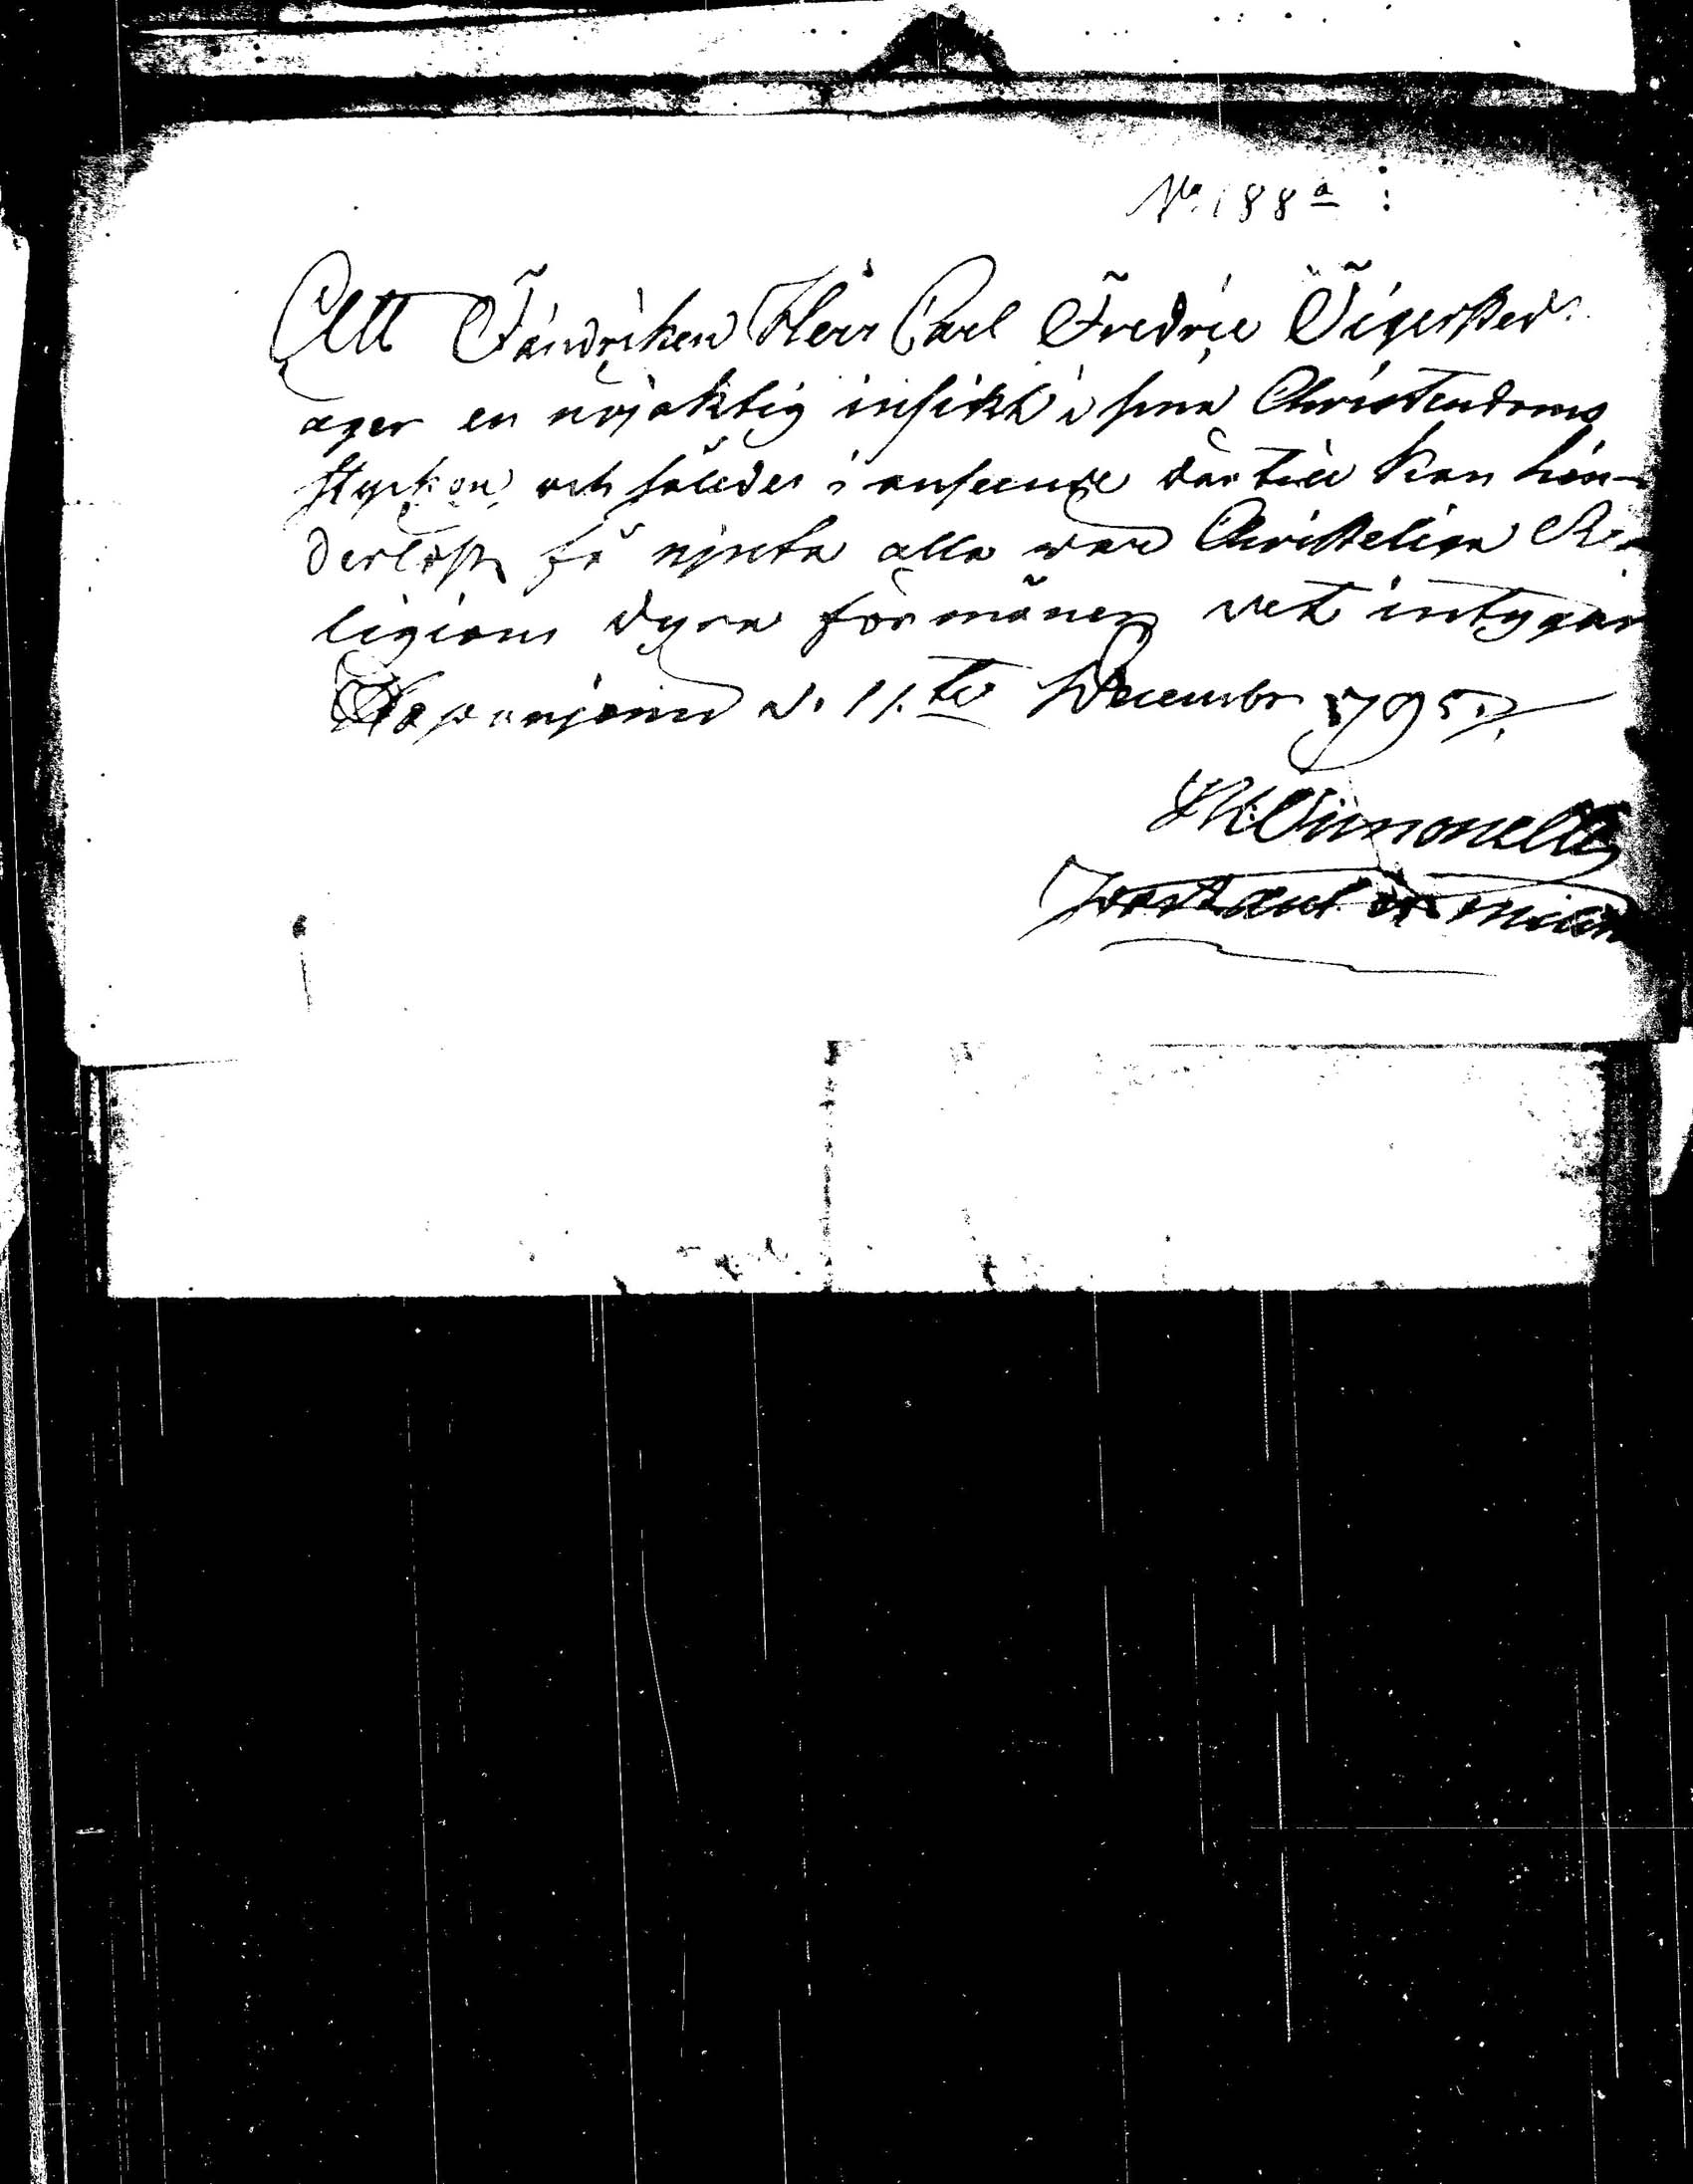 No. 188 a
Att Fändriken Herr Carl Fredric Tigersted
äger en nöjaktig insikt i sina Christendoms
stycken, och således i anseende dertill kan hin-
derlöst få njuta alla vare Christeliga Re-
ligions dyra förmåner det intygar
d. 11.te Decembr 1795.
Simonellj